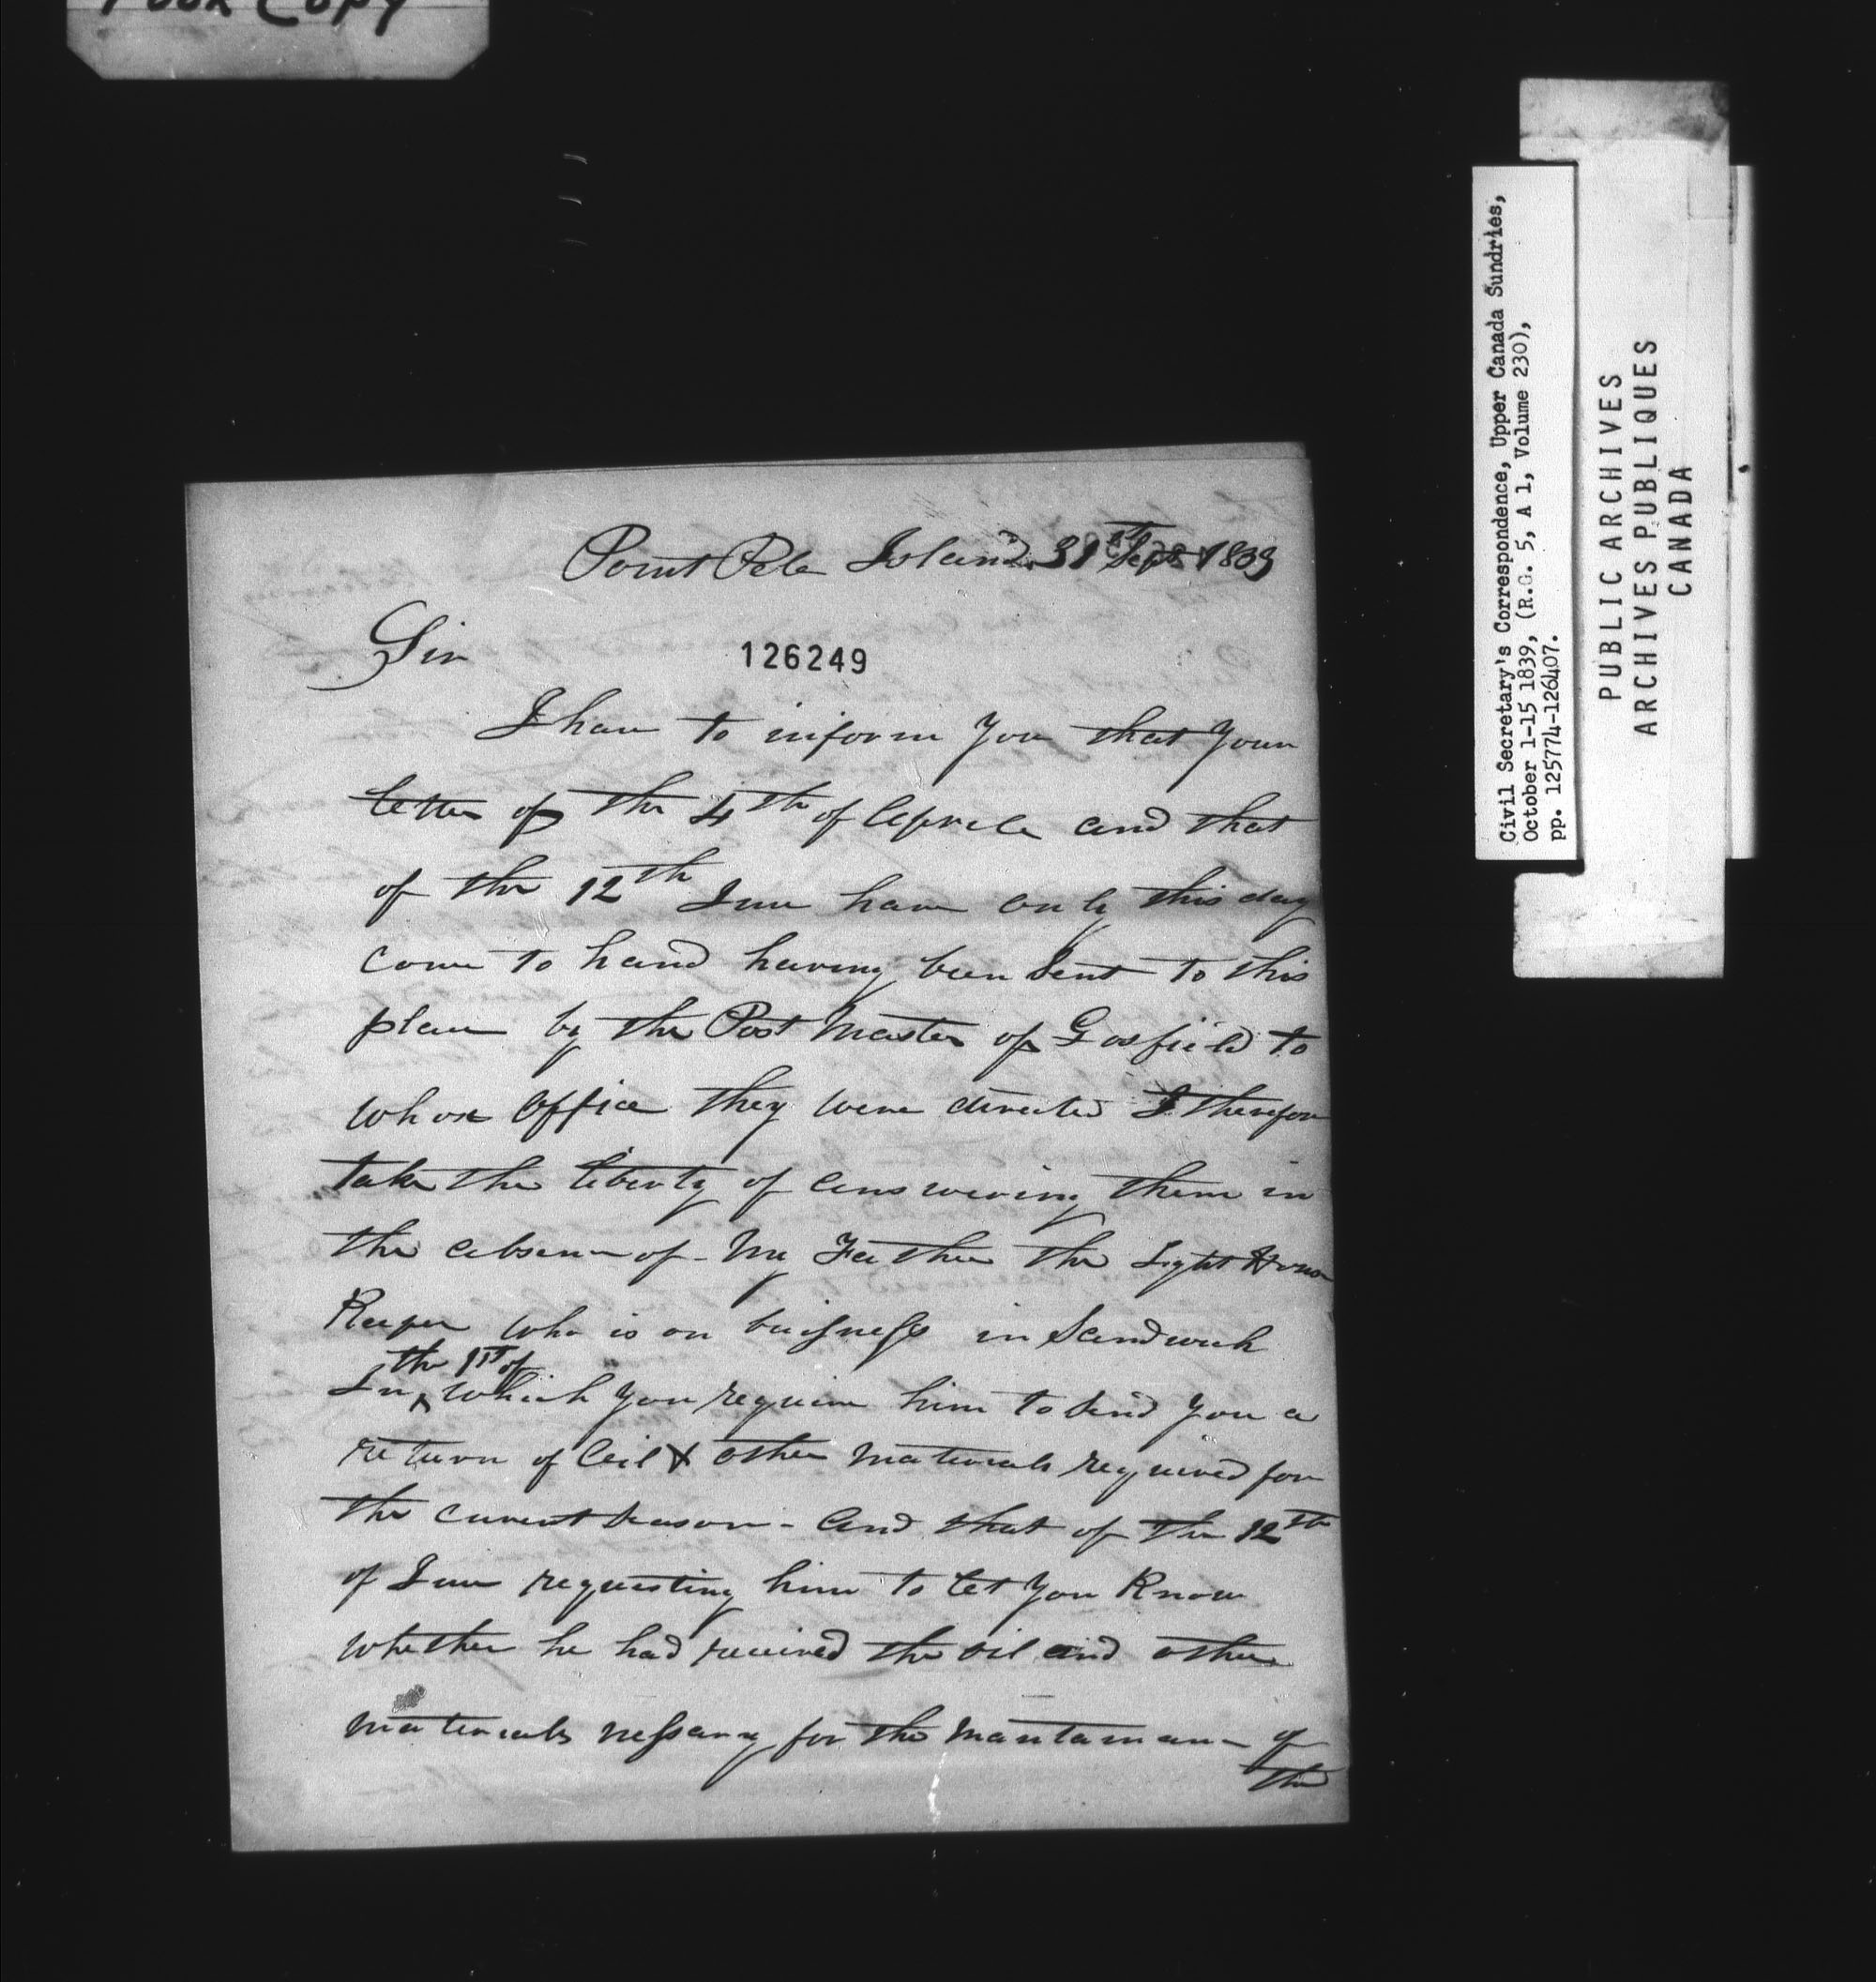 Poor Copy
Civil Secretary's Correspondence, Upper Canada Sundries,
October 1-15 1839, (R.G. 5, A 1, Volume 230),
pp. 125774-126407.
PUBLIC ARCHIVES
ARCHIVES PUBLIQUES
CANADA
Point Pele Island 31st Sept 1839
Sir
126249
I have to inform You that Your
letter of the 4th of Aprile and that
of the 12th June have only this day
come to hand having been Sent to this
place by the Post Master of Gosfield to
whose Office they were directed I therefore
take the liberty of answering them in
the absence of My Father the Light House
Keeper who is on buisness in Sandwich
In the 1st of which You require him to Send You a
return of Oil & other materials required for
the current Season - And that of the 12th
of June requesting him to let You Know
whether he had received the oil and other
materials nessary for the Maintainance of
the